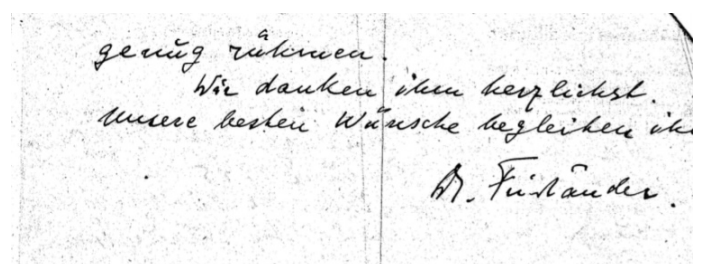 genug rühmen.
Wir danken ihm herzlichst.
Unsere besten Wünsche begleiten ih
Dr. Friedländer.